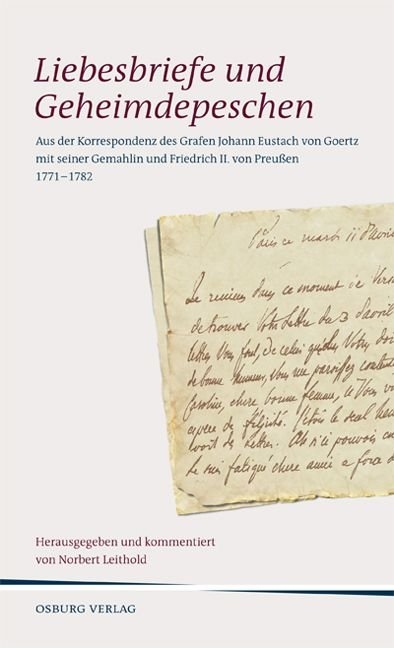 Liebesbriefe und
Geheimdepeschen
Aus der Korrespondenz des Grafen Johann Eustach von Goertz
mit seiner Gemahlin und Friedrich II. von Preußen
1771–1782
Paris ce mardi 11 d'avril
Je reviens dans ce moment de Vers
de trouver Votre Lettre du 3 d'avril
lettres Vous font, de celui
de bonne humeur, Vous me paroissez contente
Caroline, chere bonne femme, Vous
de félicité. J'étois le seul
de Lettres. Ah si je pouvois
Je suis fatigué chere amie a force d
Herausgegeben und kommentiert
von Norbert Leithold
OSBURG VERLAG